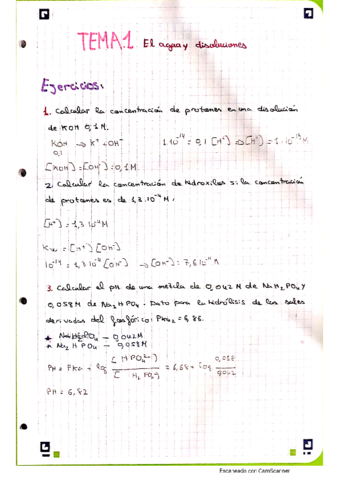 TEMA.1 El agua y disoluciones
Ejercicios:
1. Calcular la concentración de protones en una disolución
de KOH 0,1M.
KOH → K⁺ + OH⁻
0,1
1·10⁻¹⁴ = 0,1 [H⁺] ⇒ [H⁺] = 1·10⁻¹³ M
[KOH] = [OH⁻] = 0,1M.
2. Calcular la concentración de hidroxilos si la concentración
de protones es de 1,3·10⁻⁴ M.
[H⁺] = 1,3·10⁻⁴ M
Kw = [H⁺][OH⁻]
10⁻¹⁴ = 1,3·10⁻⁴ [OH⁻] → [OH⁻] = 7,6·10⁻¹¹ M
3. Calcular el pH de una mezcla de 0,042 M de NaH₂PO₄ y
0,058 M de Na₂HPO₄. Dato para la hidrólisis de las sales
derivadas del fosfórico: PKa₂ = 6,86.
* NaH₂PO₄ - 0,042M
* Na₂HPO₄ - 0,058M
PH = PKa + log [HPO₄²⁻] / [H₂PO₄⁻] = 6,86 + log 0,058 / 0,042
PH = 6,82
Escaneado con CamScanner